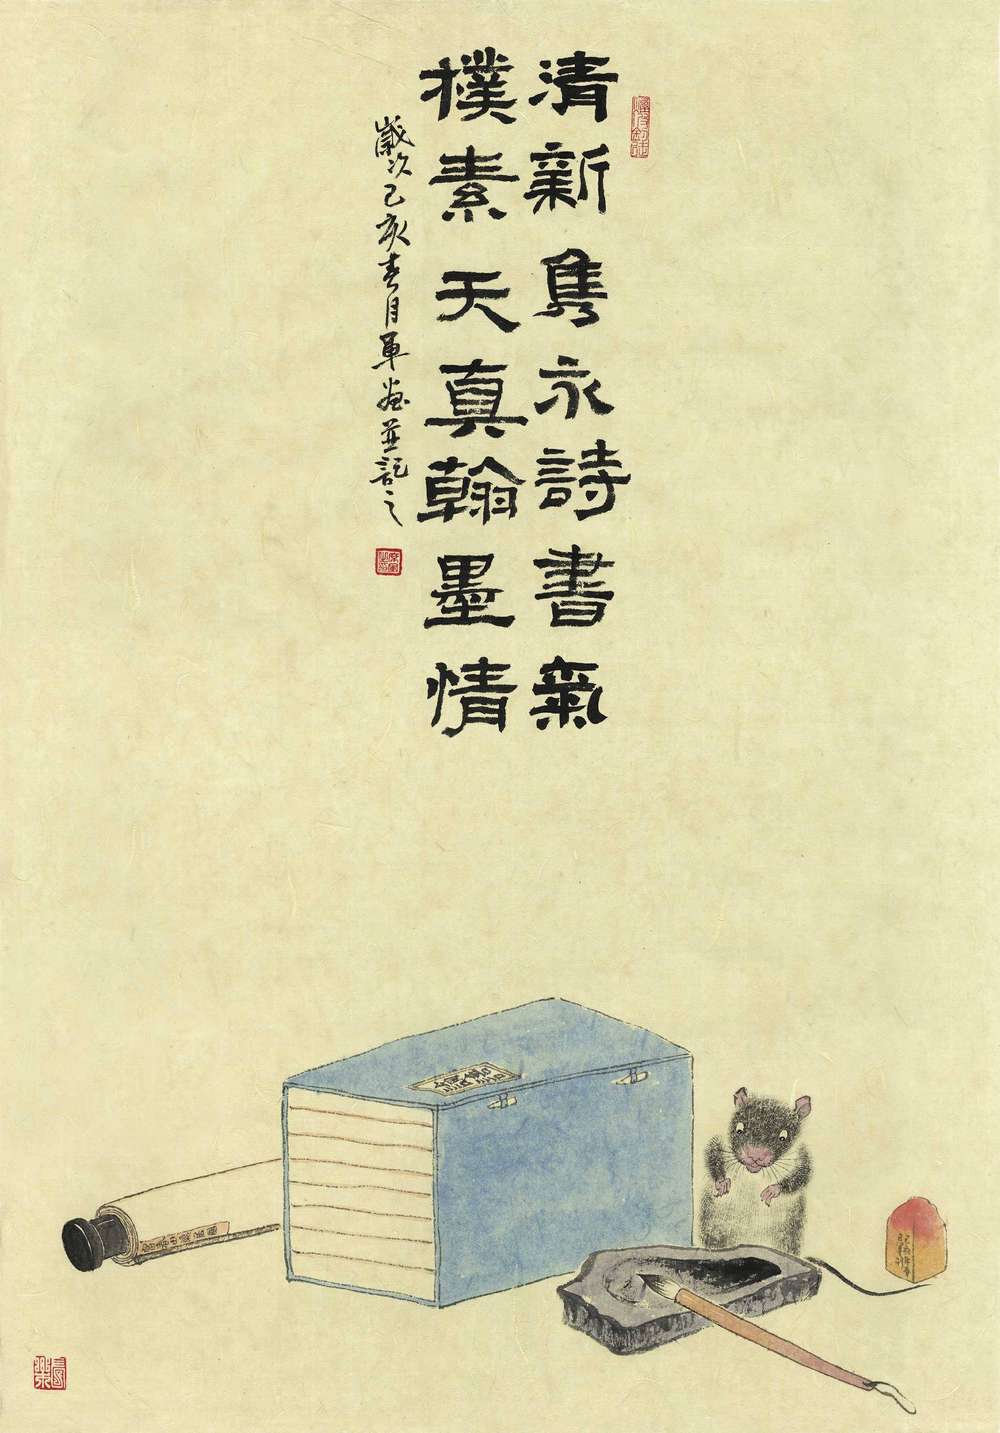 清新雋永詩書氣
樸素天真翰墨情
歲次己亥春月軍畫並記之